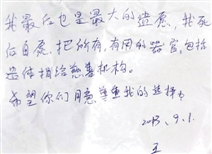 我最后也是最大的遗愿，我死
后自愿，把所有，有用的器官，包括
遗体捐给慈善机构。
希望你们同意尊重我的选择。
2013.9.1.
王